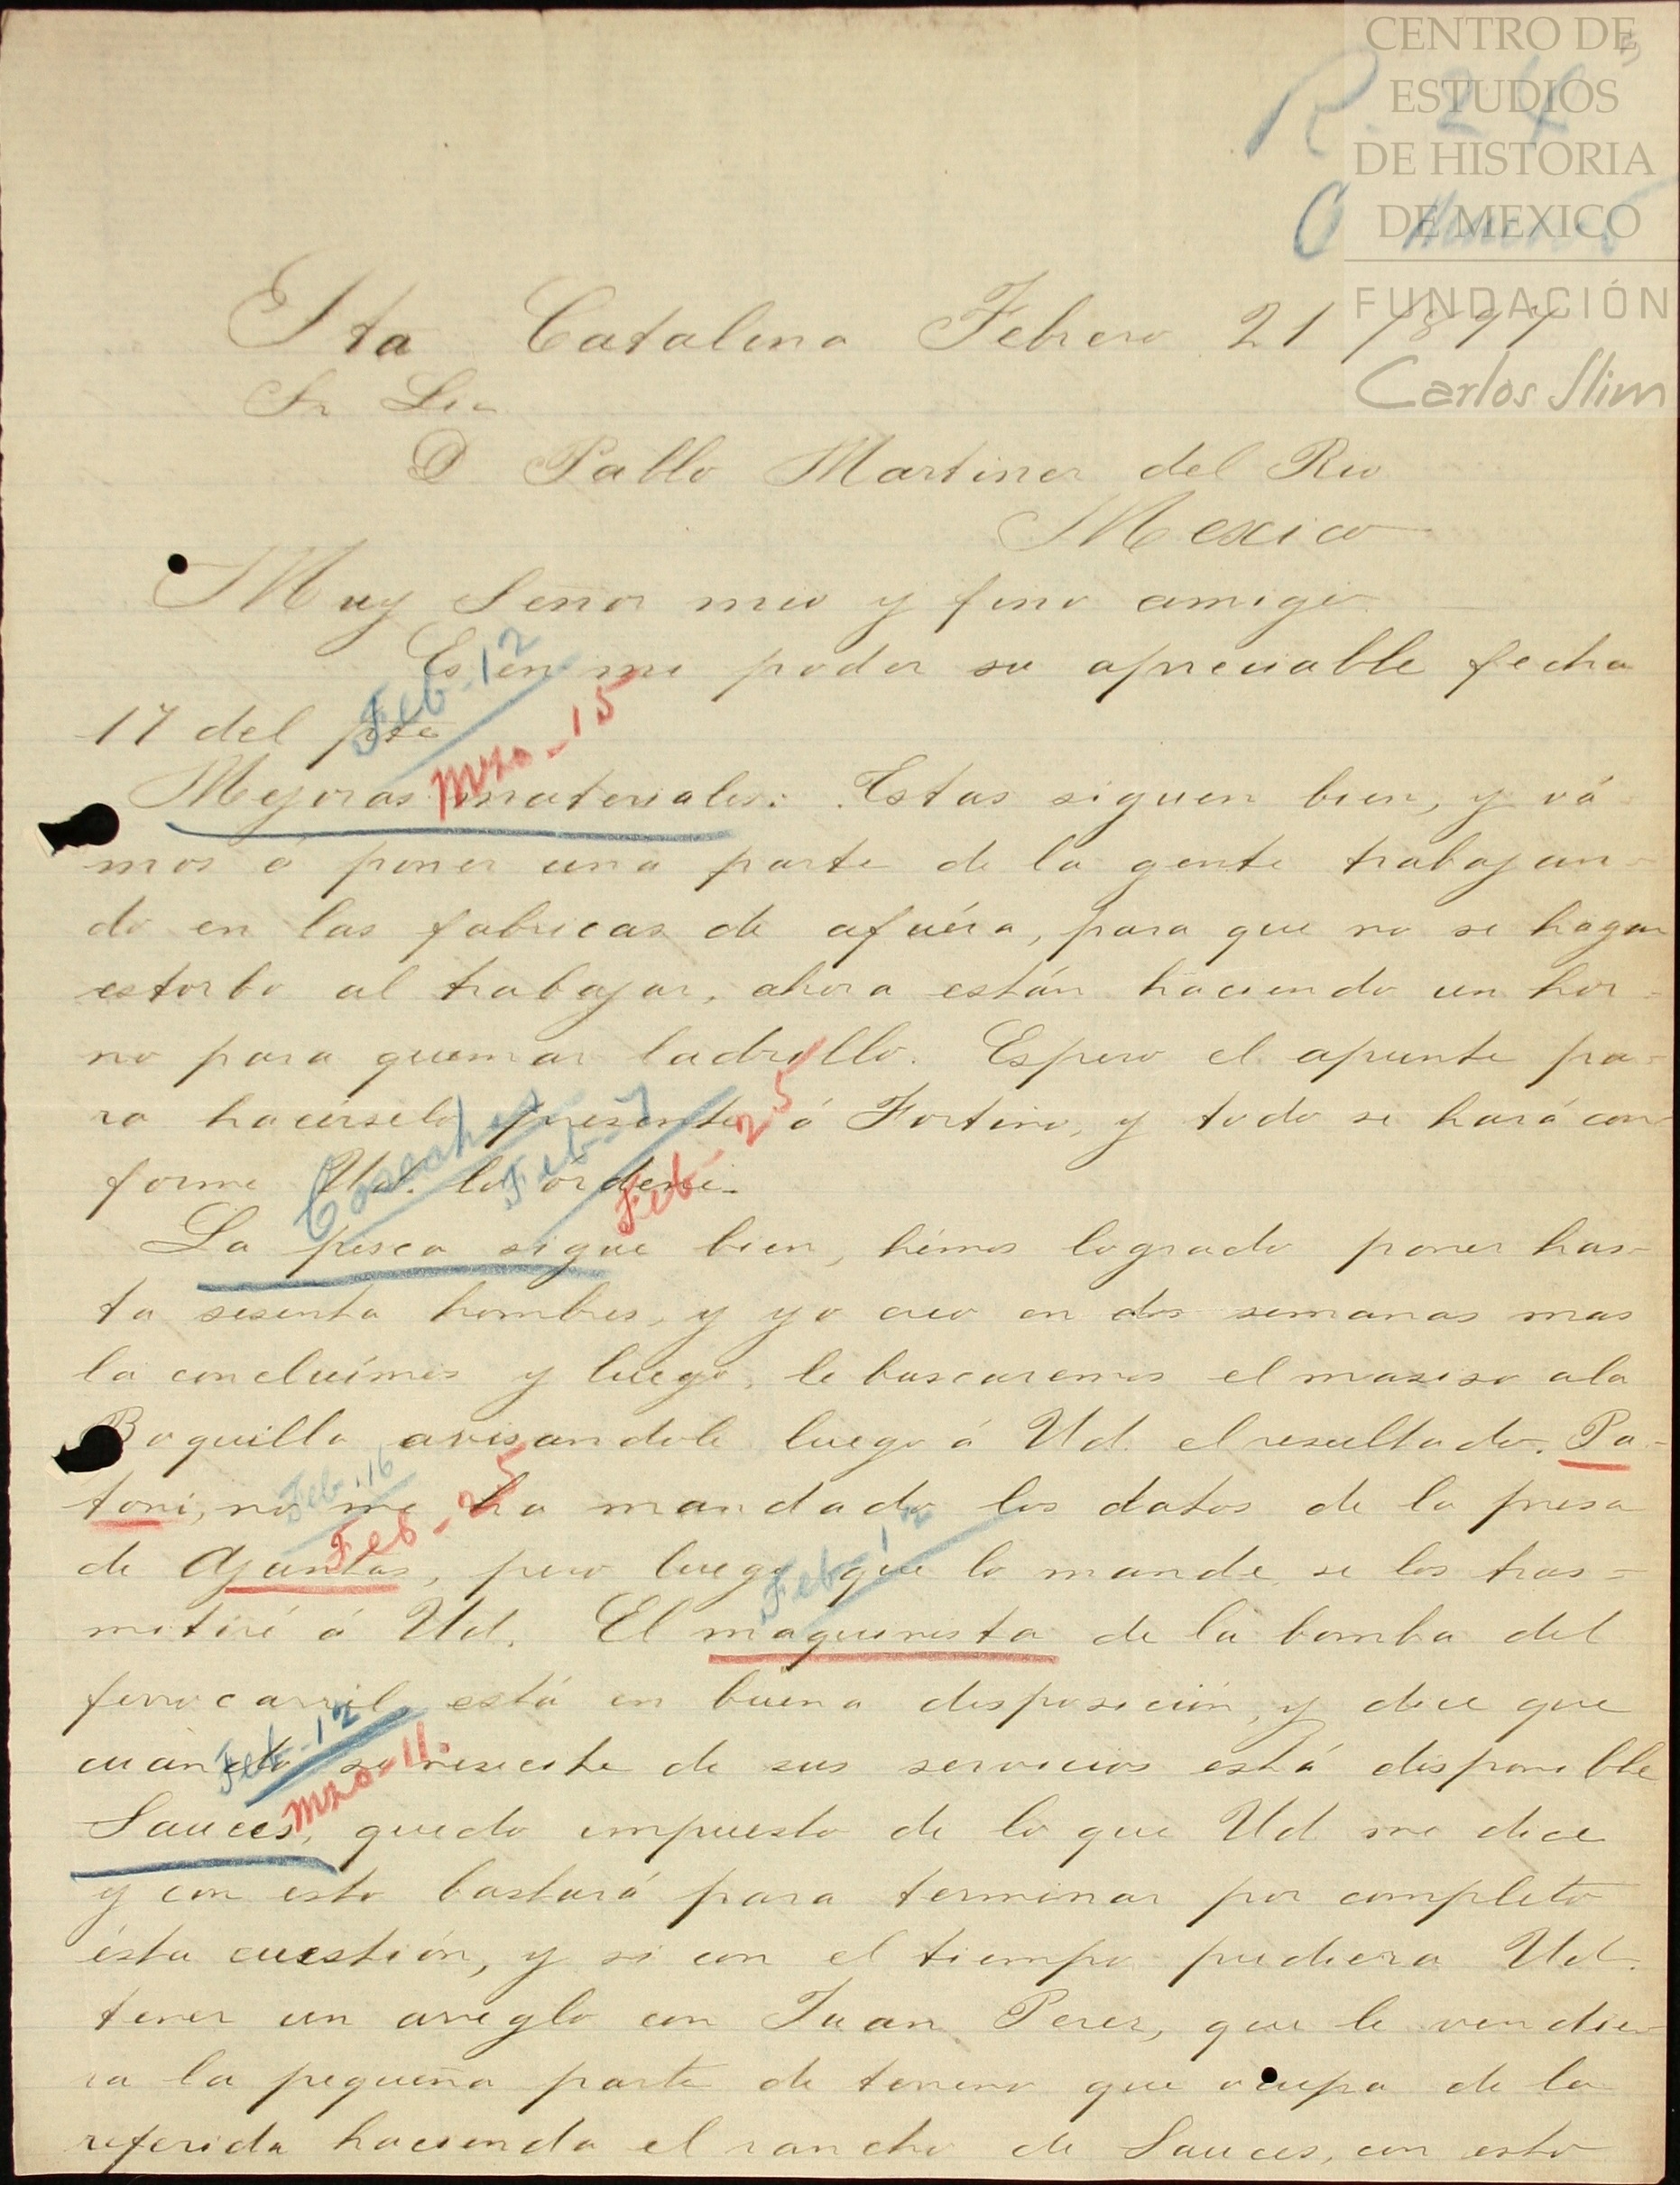 CENTRO DE
ESTUDIOS
DE HISTORIA
DE MEXICO
FUNDACIÓN
Carlos Slim
R. 24
Sta Catalina Febrero 21 1897
Sr Lic
D Pablo Martinez del Rio
Mexico
Muy Señor mio y fino amigo
Es en mi poder su apreciable fecha
17 del pte
Feb-12
Mzo-15
Mejoras materiales: Estas siguen bien, y vá
mos á poner una parte de la gente trabajan=
do en las fabricas de afuéra, para que no se hagan
estorbo al trabajar, ahora están haciendo un hor=
no para quemar ladrillo. Espero el apunte pa=
ra hacérselo presente á Fortino, y todo se hará con
forme Ud. lo órdene.
Feb-7
Feb-25
La presa sigue bien, hémos logrado poner has=
ta sesenta hombres, y yo creo en dos semanas mas
la concluímos y luego, le buscaremos el masiso ala
Boquilla avisandole luego á Ud. el resultado. Pa=
toni, no me ha mandado los datos de la presa
Feb-16
Feb-25
de Ajuntas, pero luego que lo mande se los tras=
Feb-12
mitiré á Ud. El maquinista de la bomba del
ferrocarril está en buena disposición, y dice que
cuándo se nesecite de sus servicios está disponible
Feb-12
Mzo-11.
Sauces, quedo impuesto de lo que Ud me dice
y con esto bastará para terminar por completo
ésta cuestión, y si con el tiempo pudiera Ud.
tener un arreglo con Juan Perez, que le vendie=
ra la pequeña parte de terreno que ocupa de la
referida hacienda el rancho de Sauces, con esto